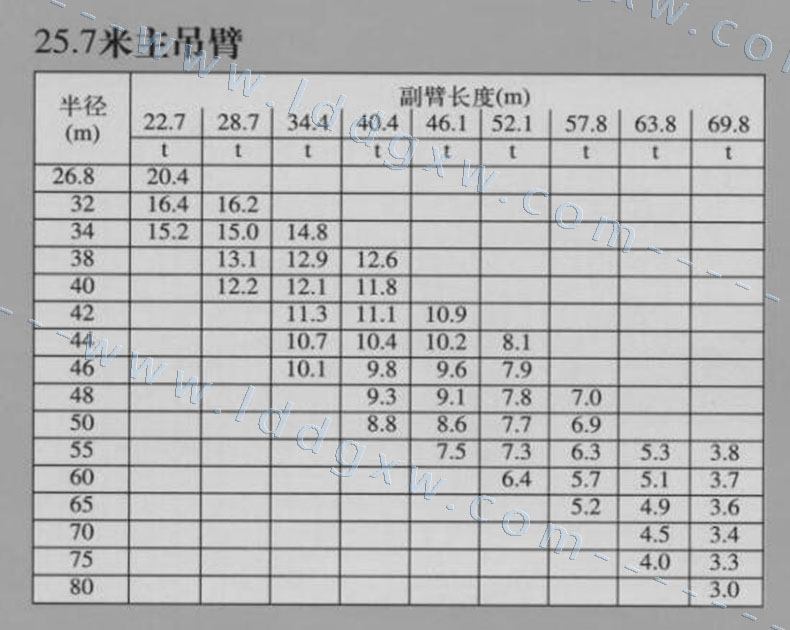 25.7米主吊臂
半径 副臂长度(m)
(m) 22.7 28.7 34.4 40.4 46.1 52.1 57.8 63.8 69.8
t t t t t t t t t
26.8 20.4
32 16.4 16.2
34 15.2 15.0 14.8
38 13.1 12.9 12.6
40 12.2 12.1 11.8
42 11.3 11.1 10.9
44 10.7 10.4 10.2 8.1
46 10.1 9.8 9.6 7.9
48 9.3 9.1 7.8 7.0
50 8.8 8.6 7.7 6.9
55 7.5 7.3 6.3 5.3 3.8
60 6.4 5.7 5.1 3.7
65 5.2 4.9 3.6
70 4.5 3.4
75 4.0 3.3
80 3.0
www.lddgxw.com
www.lddgxw.com